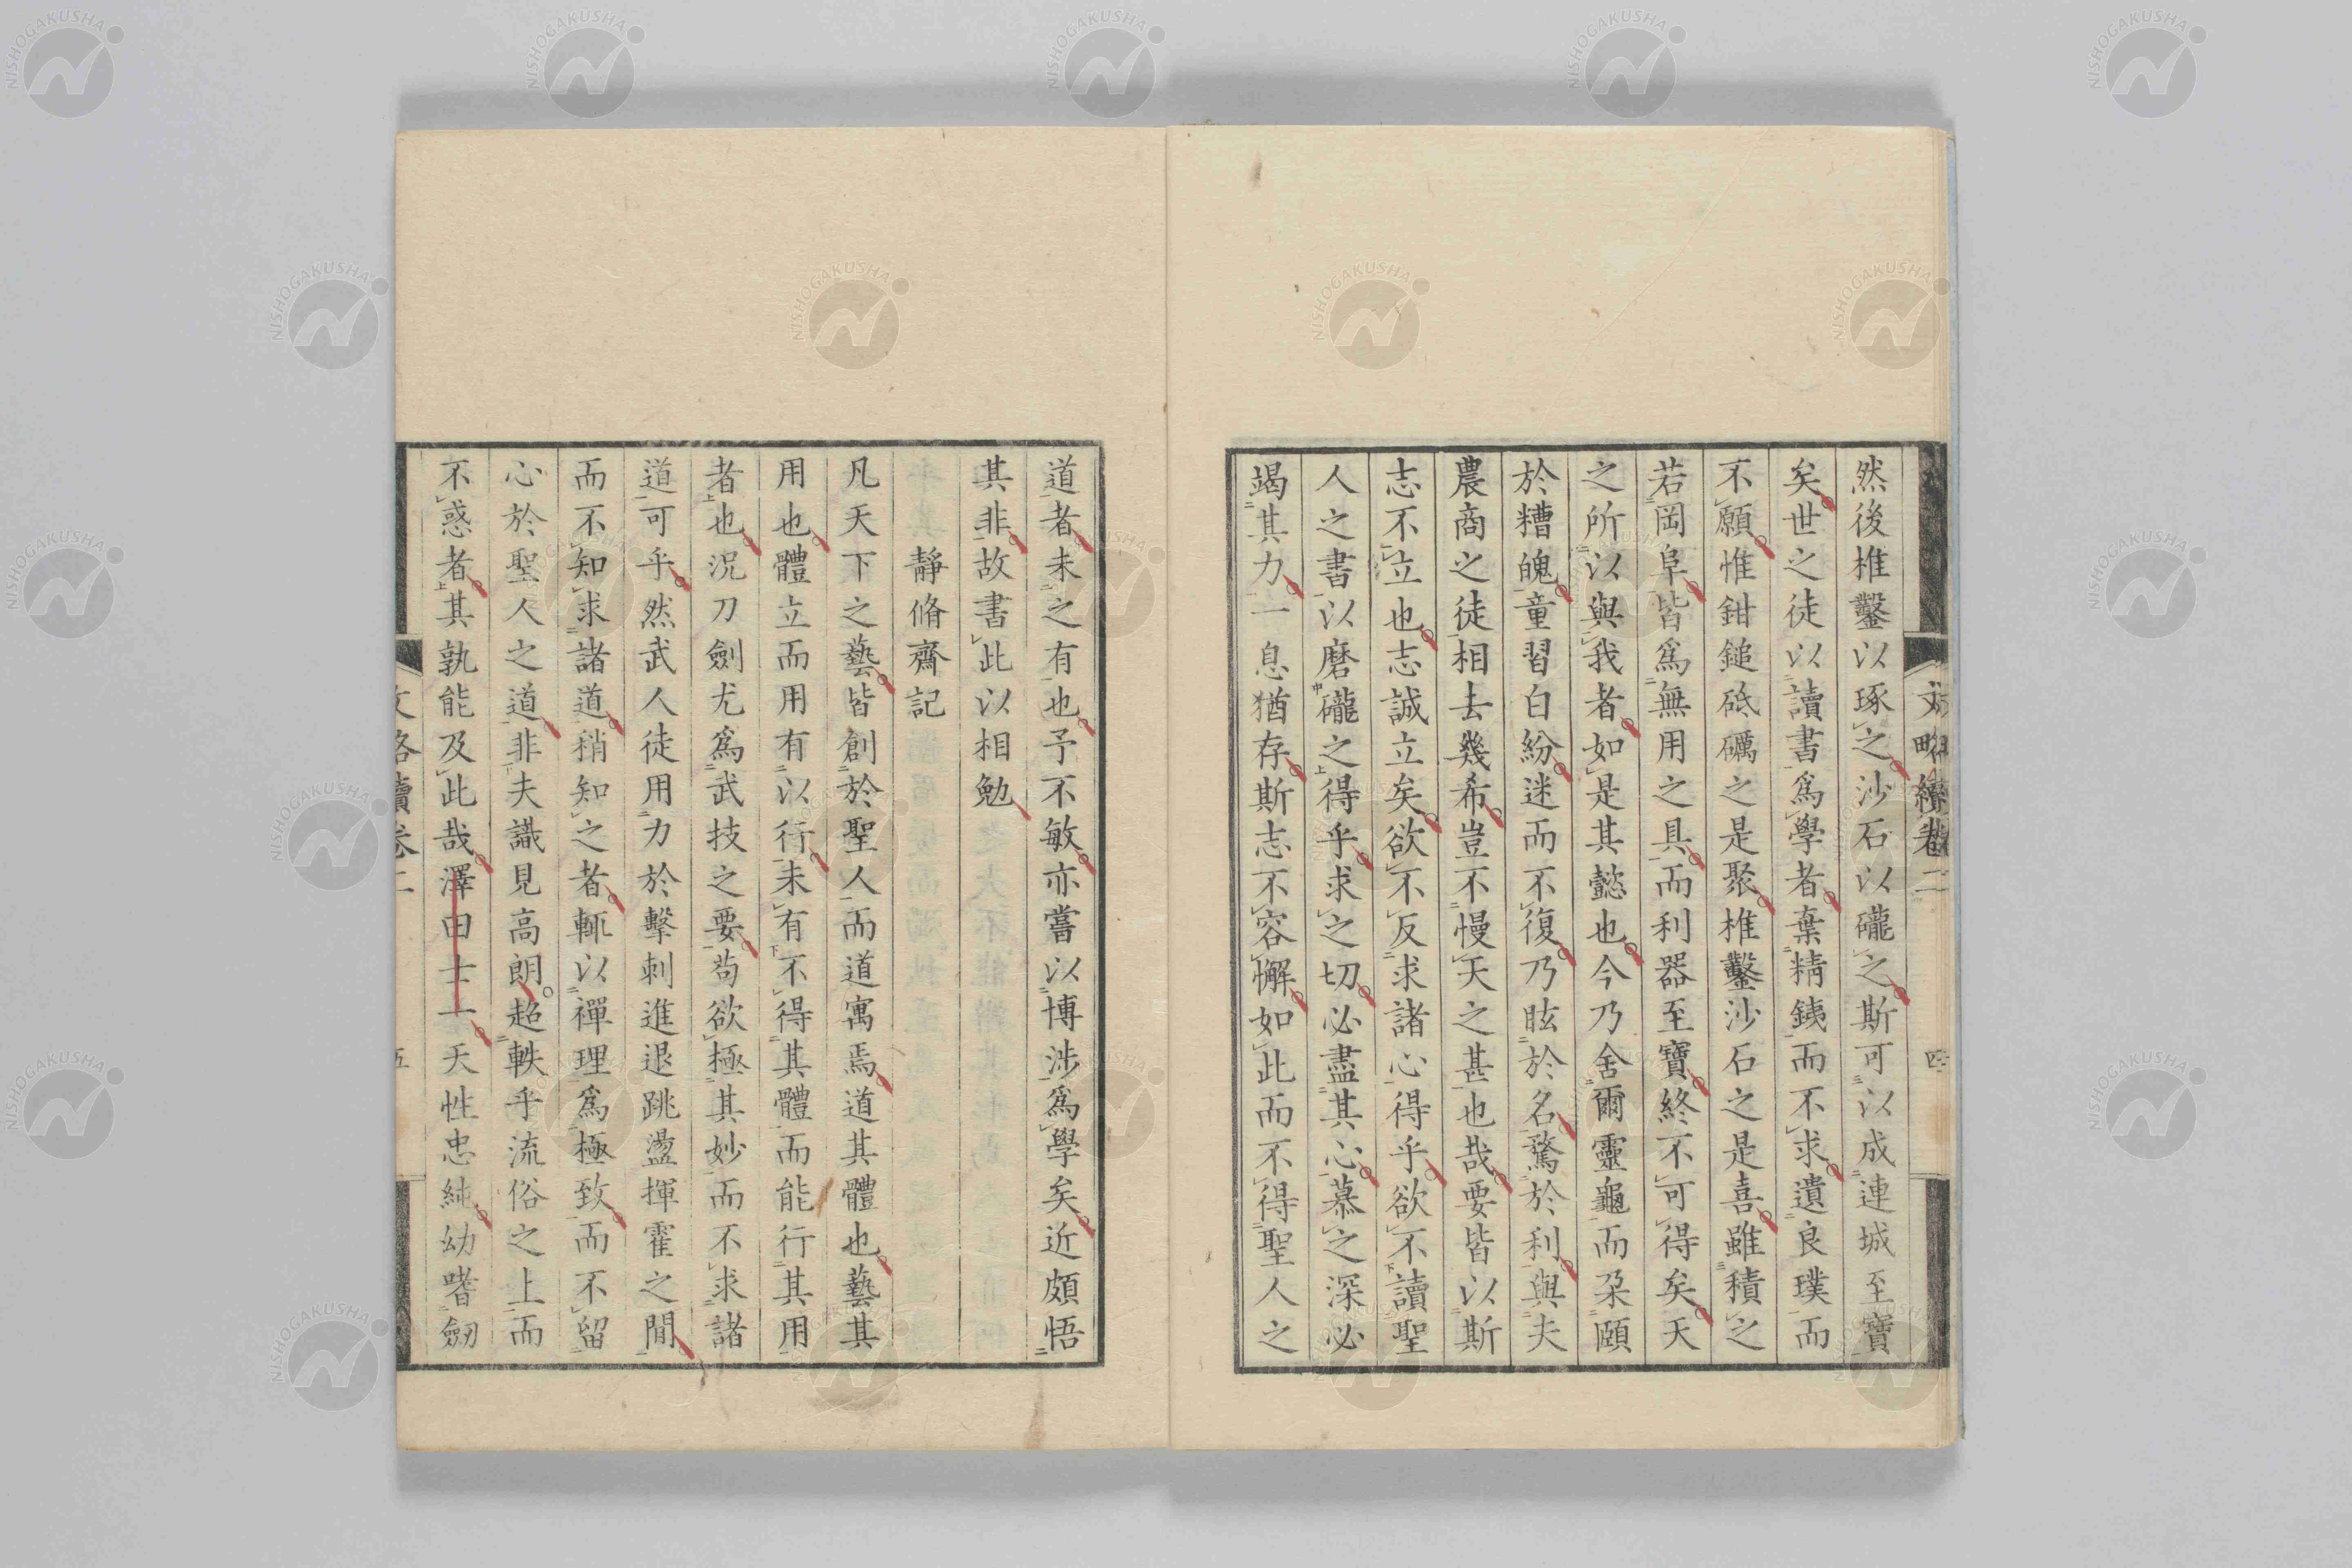 然後椎鑿以琢之沙石以礲之斯可以成連城至寶
矣世之徒以讀書爲學者棄精銕而不求遺良璞而
不願惟鉗鎚砥礪之是聚椎鑿沙石之是喜雖積之
若岡阜皆爲無用之具而利器至寶終不可得矣天
之所以與我者如是其懿也今乃舍爾靈龜而朶頤
於糟魄童習白紛迷而不復乃眩於名騖於利與夫
農商之徒相去幾希豈不慢天之甚也哉要皆以斯
志不立也志誠立矣欲不反求諸心得乎欲不讀聖
人之書以磨礲之得乎求之切必盡其心慕之深必
竭其力一息猶存斯志不容懈如此而不得聖人之
文略續卷二
四
道者未之有也予不敏亦嘗以博涉爲學矣近頗悟
其非故書此以相勉
靜脩齋記
凡天下之藝皆創於聖人而道寓焉道其體也藝其
用也體立而用有以行未有不得其體而能行其用
者也況刀劍尤爲武技之要苟欲極其妙而不求諸
道可乎然武人徒用力於擊刺進退跳盪揮霍之間
而不知求諸道稍知之者輒以禪理爲極致而不留
心於聖人之道非夫識見高朗超軼乎流俗之上而
不惑者其孰能及此哉澤田士一天性忠純幼嗜劒
文略續卷二
五
NISHOGAKUSHA